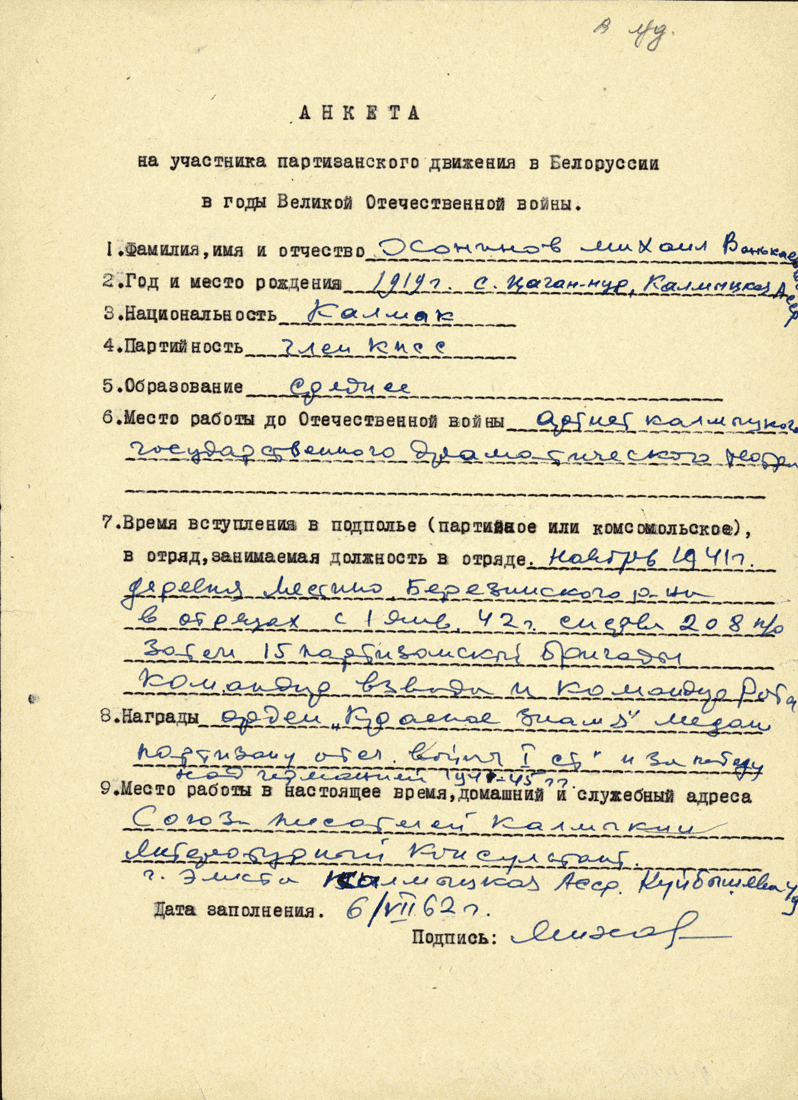 АНКЕТА
на участника партизанского движения в Белоруссии
в годы Великой Отечественной войны.
1.Фамилия,имя и отчество Хонинов Михаил Ванькаевич
2.Год и место рождения 1919г. с. Цаган-нур, Калмыцкая Асср
3.Национальность Калмык
4.Партийность член КПСС
5.Образование среднее
6.Место работы до Отечественной войны артист калмыцкого
государственного драматического театра
7.Время вступления в подполье (партийное или комсомольское),
в отряд,занимаемая должность в отряде. ноябрь 1941г.
деревня Местино, Березинского р-на
в отрядах с 1 янв. 42г. 208 п/о
Затем 15 партизанской бригады
командир взвода и командир роты
8.Награды орден "Красное знамя" медали
партизану отеч. войны I ст" и За победу
над германией 1941-45 гг.
9.Место работы в настоящее время,домашний и служебный адреса
Союз писателей Калмыкии
Литературный консультант.
г. Элиста Калмыцкая Асср. Куйбышева
Дата заполнения. 6/VII 62г.
Подпись: